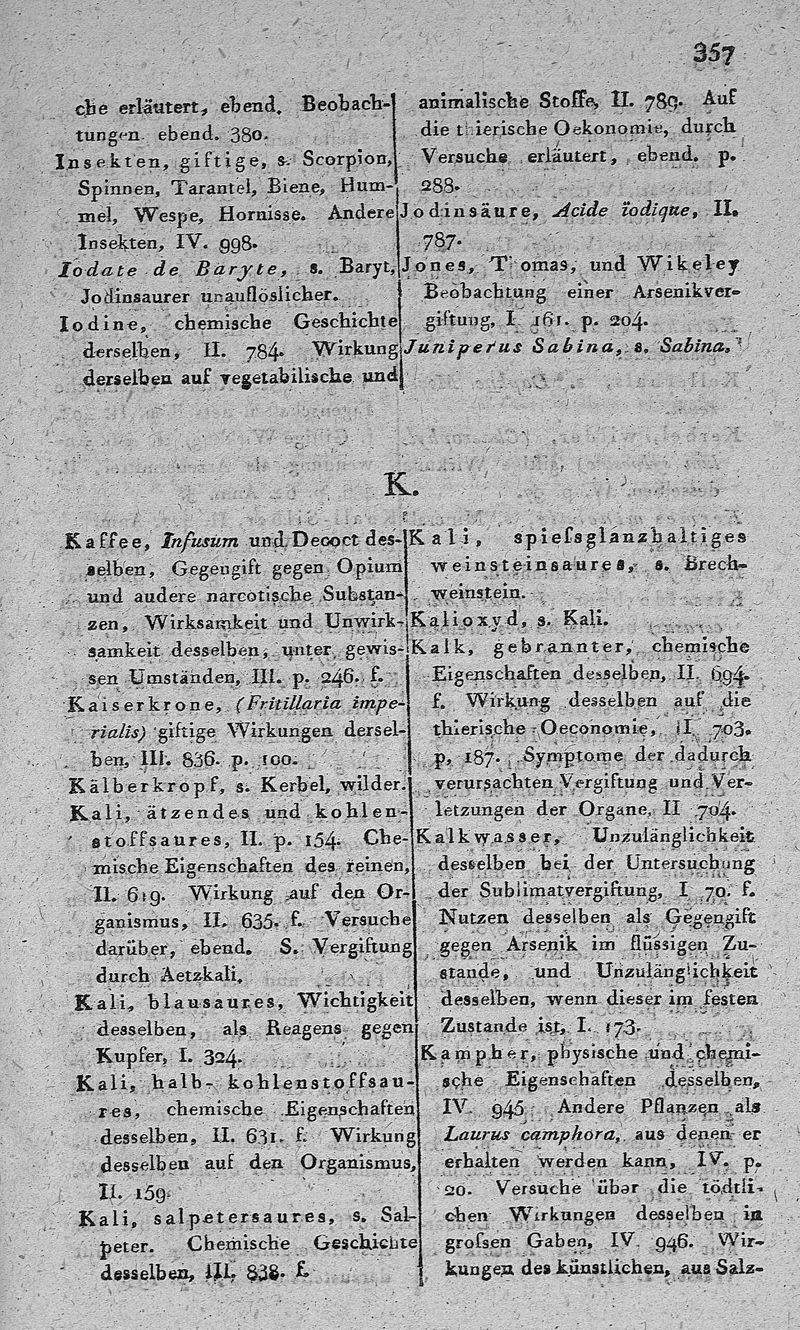 357
che erläutert, ebend. Beobach-
tungen ebend. 380.
Insekten, giftige, s. Scorpion,
Spinnen, Tarantel, Biene, Hum-
mel, Wespe, Hornisse. Andere
Insekten, IV. 998.
Iodate de Baryte, s. Baryt,
Jodinsaurer unauflöslicher.
Iodine, chemische Geschichte
derselben, II. 784. Wirkung
derselben auf vegetabilische und
animalische Stoffe, II. 789. Auf
die thierische Oekonomie, durch
Versuche erläutert, ebend. p.
288.
Jodinsäure, Acide ïodique, II.
787.
Jones, Thomas, und Wikeley
Beobachtung einer Arsenikver-
giftung, I 161. p. 204.
Juniperus Sabina, s. Sabina.
K.
Kaffee, Infusum und Decoct des-
selben, Gegengift gegen Opium
und audere narcotische Substan-
zen, Wirksamkeit und Unwirk-
samkeit desselben, unter gewis-
sen Umständen, III. p. 246. f.
Kaiserkrone, (Fritillaria impe-
rialis) giftige Wirkungen dersel-
ben, III. 836. p. 100.
Kälberkropf, s. Kerbel, wilder.
Kali, ätzendes und kohlen-
stoffsaures, II. p. 154. Che-
mische Eigenschaften des reinen,
II. 619. Wirkung auf den Or-
ganismus, II. 635. f. Versuche
darüber, ebend. S. Vergiftung
durch Aetzkali.
Kali, blausaures, Wichtigkeit
desselben, als Reagens gegen
Kupfer, I. 324.
Kali, halb-kohlenstoffsau-
res, chemische Eigenschaften
desselben, II. 631. f. Wirkung
desselben auf den Organismus,
II. 159.
Kali, salpetersaures, s. Sal-
peter. Chemische Geschichte
desselben, III. 838. f.
Kali, spiefsglanzhaltiges
weinsteinsaures, s. Brech-
weinstein.
Kalioxyd, s. Kali.
Kalk, gebrannter, chemische
Eigenschaften desselben, II. 694.
f. Wirkung desselben auf die
thierische Oeconomie, II 703.
p. 187. Symptome der dadurch
verursachten Vergiftung und Ver-
letzungen der Organe, II 704.
Kalkwasser, Unzulänglichkeit
desselben bei der Untersuchung
der Sublimatvergiftung, I 70. f.
Nutzen desselben als Gegengift
gegen Arsenik im flüssigen Zu-
stande, und Unzulänglichkeit
desselben, wenn dieser im festen
Zustande ist, I. 173.
Kampher, physische und chemi-
sche Eigenschaften desselben,
IV. 945. Andere Pflanzen als
Laurus camphora, aus denen er
erhalten werden kann, IV. p.
20. Versuche über die tödtli-
chen Wirkungen desselben in
grofsen Gaben, IV 946. Wir-
kungen des künstlichen, aus Salz-